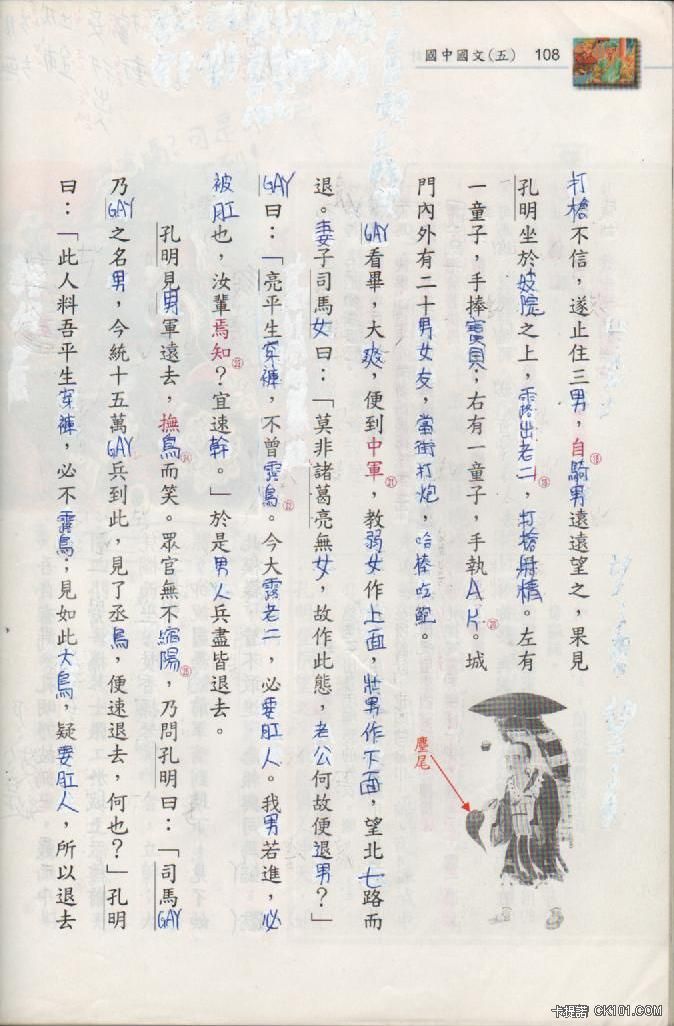 國中國文(五) 108
打槍不信，遂止住三男，自騎男遠遠望之，果見
⑱
孔明坐於妓院之上，露出老二，打槍射精。左有
⑲
一童子，手捧寶貝；右有一童子，手執A片。城
⑳
門內外有二十男女友，當街打炮，哈棒吃鮑。
GAY看畢，大爽，便到中軍，教弱女作上面，壯男作下面，望北七路而
㉑
退。妻子司馬女曰：「莫非諸葛亮無女，故作此態，老公何故便退男？」
GAY曰：「亮平生穿褲，不曾露鳥。今大露老二，必要肛人。我男若進，必
㉒
被肛也，汝輩焉知？宜速幹。」於是男人兵盡皆退去。
㉓
孔明見男軍遠去，撫鳥而笑。眾官無不縮陽，乃問孔明曰：「司馬GAY
㉔
㉕
乃GAY之名男，今統十五萬GAY兵到此，見了丞鳥，便速退去，何也？」孔明
曰：「此人料吾平生穿褲，必不露鳥；見如此大鳥，疑要肛人，所以退去
麈尾
卡提諾 CK101.COM